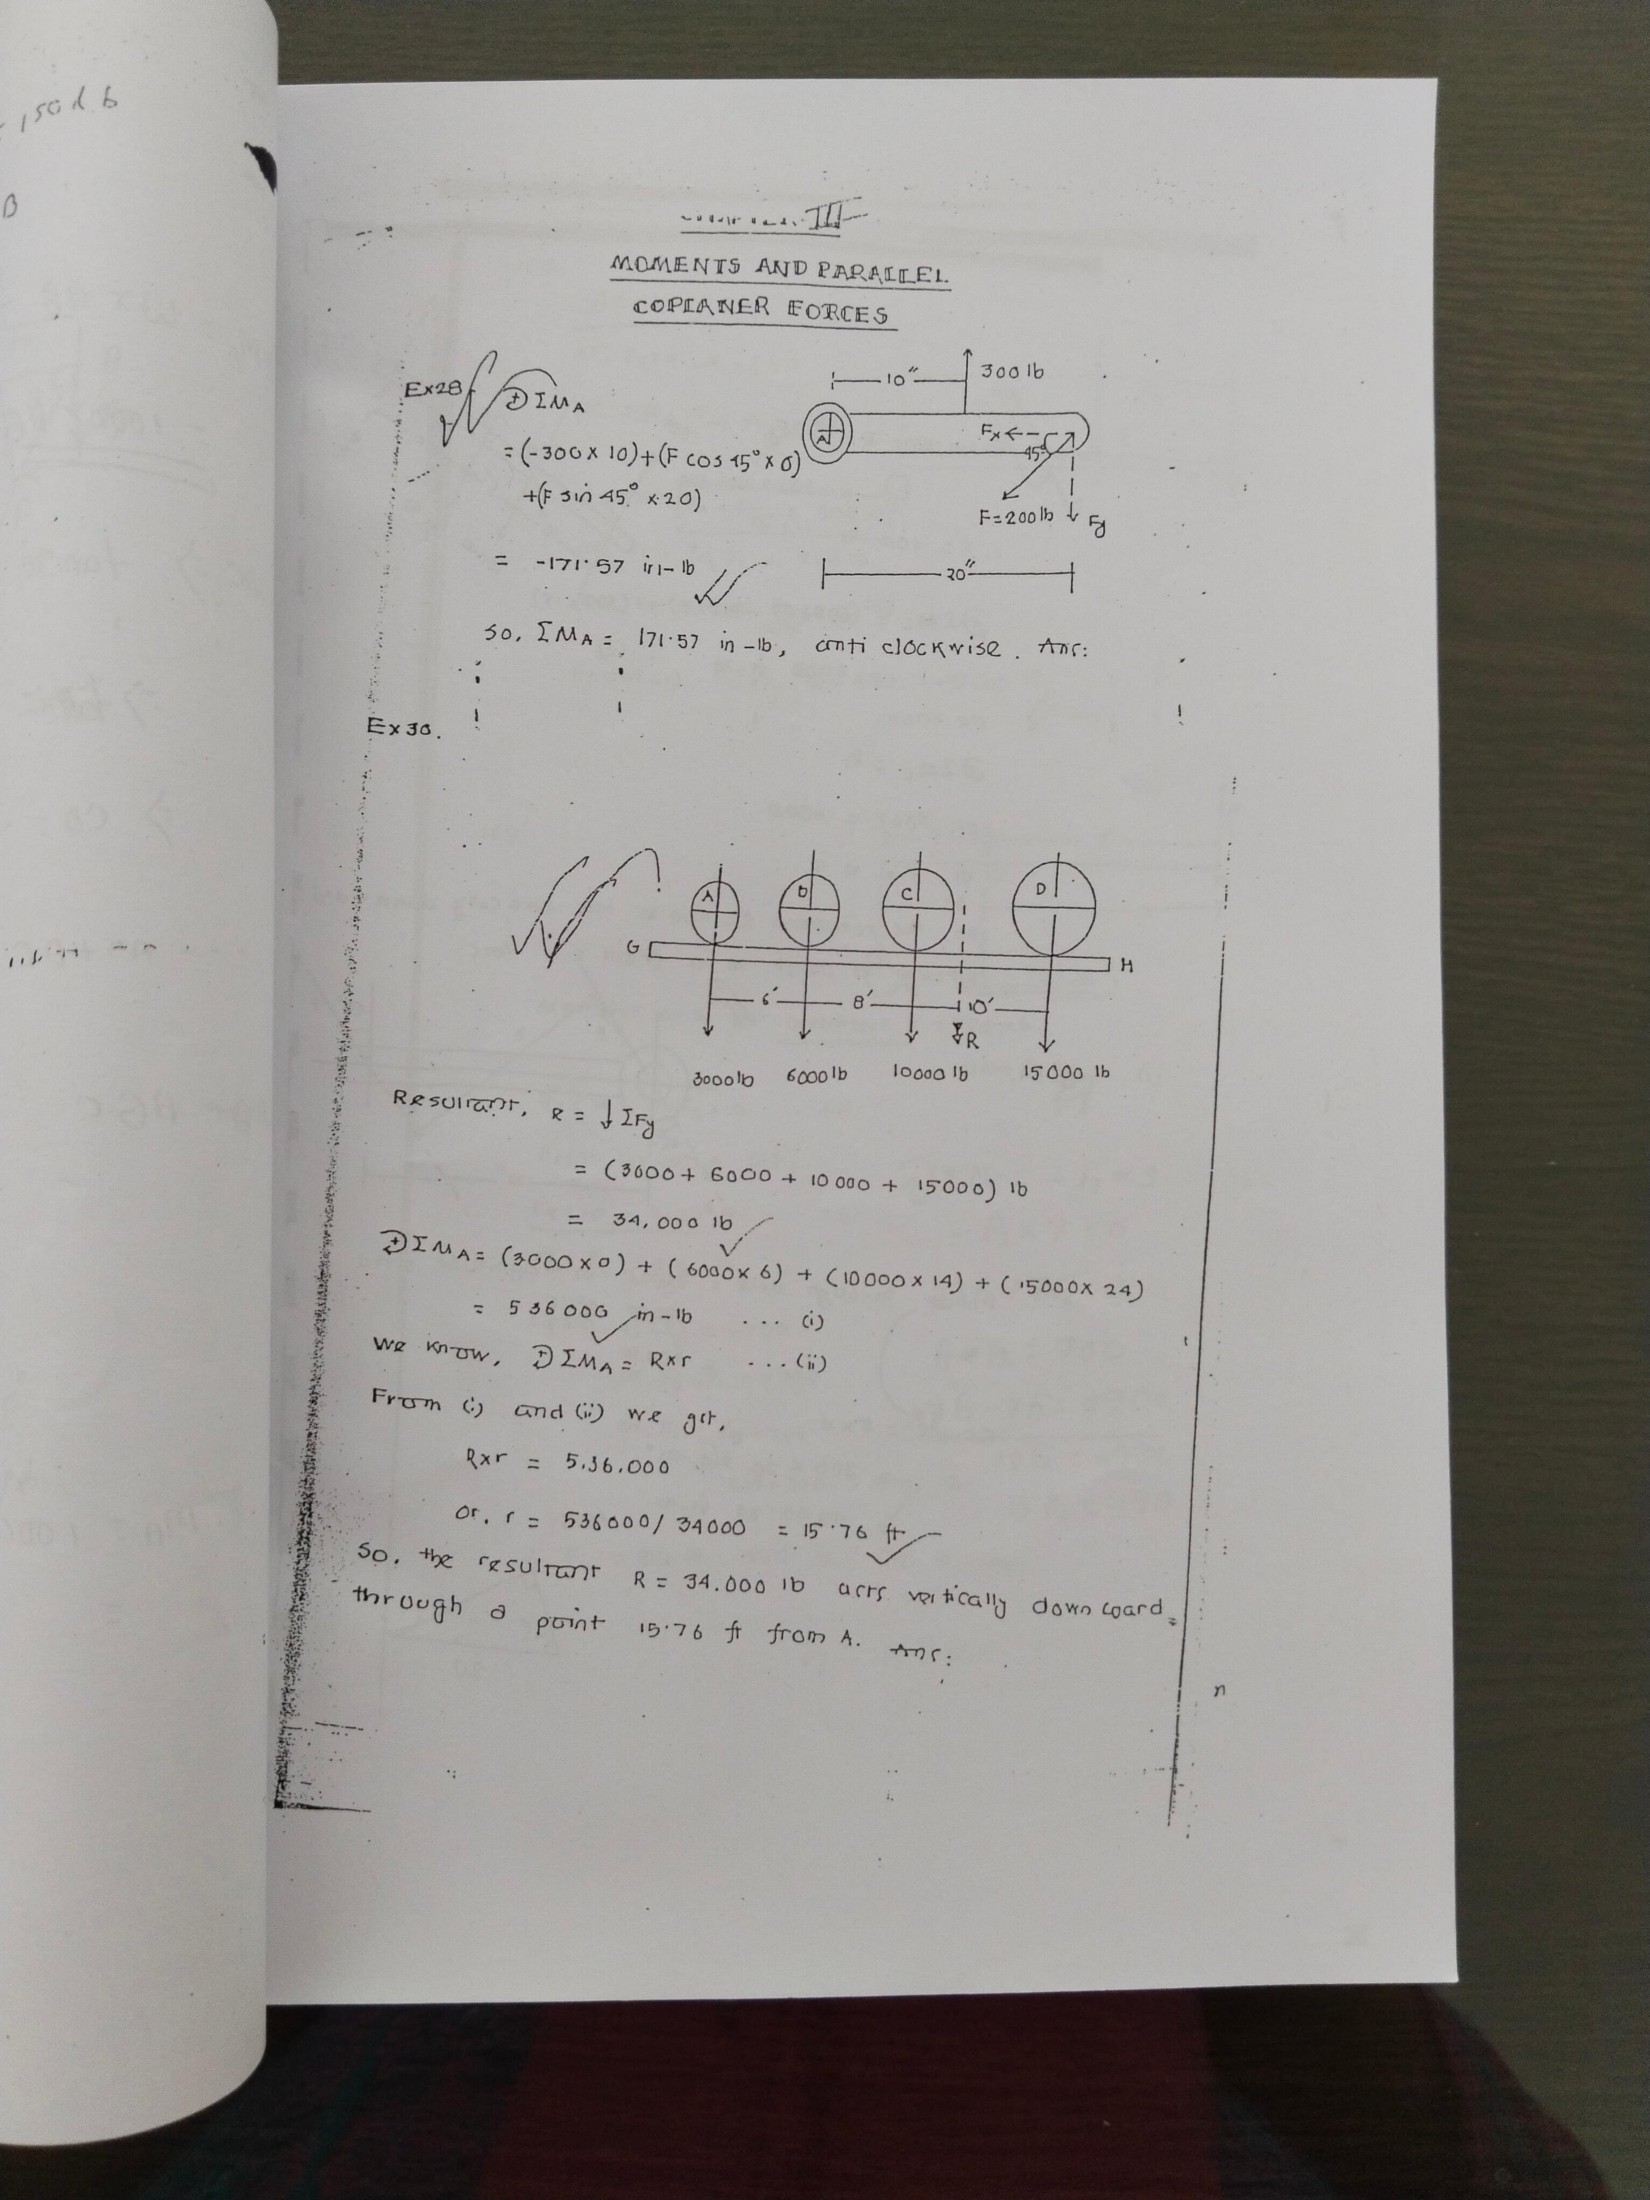 III
MOMENTS AND PARALLEL
COPLANER FORCES
Ex28
ΣMA
= (-300 x 10) + (F cos 45° x 0)
+ (F sin 45° x 20)
= -171.57 in-lb
So, ΣMA = 171.57 in-lb, anti clockwise. Ans:
10"
300 lb
A
Fx
45°
F=200lb
Fy
20"
Ex 30.
A B C D
G
H
6' 8' 10'
R
3000lb 6000lb 10000 lb 15000 lb
Resultant, R = ↓ΣFy
= (3000 + 6000 + 10000 + 15000) lb
= 34,000 lb
ΣMA = (3000 x 0) + (6000 x 6) + (10000 x 14) + (15000 x 24)
= 536000 in-lb ... (i)
We know, ΣMA = Rxr ... (ii)
From (i) and (ii) we get,
Rxr = 5.36.000
or, r = 536000/34000 = 15.76 ft
So, the resultant R = 34.000 lb acts vertically downward
through a point 15.76 ft from A. Ans:
n